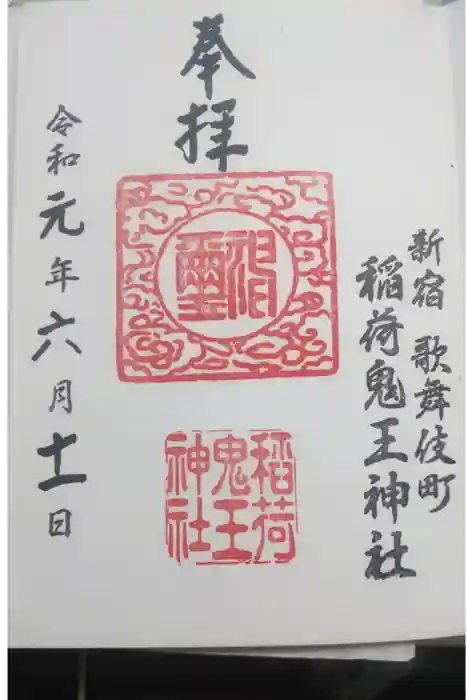 奉拝
新宿 歌舞伎町
稲荷鬼王神社
稲荷
鬼王
神社
令和元年六月十一日